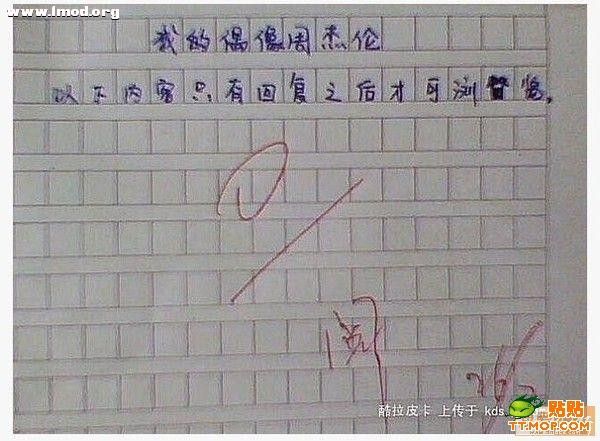 www.lmod.org
我的偶像周杰伦
以下内容只有回复之后才可浏览。
阅
酷拉皮卡 上传于 kds
贴贴
TTMOP.COM